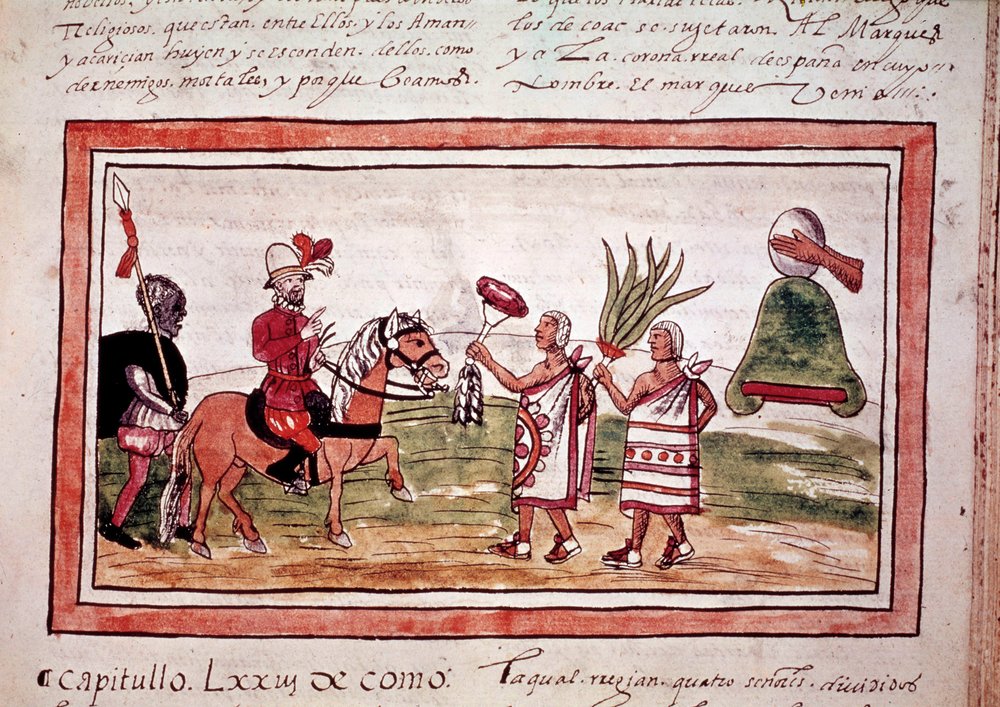 Religiosos. que estan. entre Ellos. y los Aman-
y acarician huyen y se esconden. dellos. como
de enemigos. mortales, y porque Veamos.
los de coac se sujetaron AL Marques
y a La. corona. rreal de españa en cuyo
Nombre. El marques Venia
capitullo. Lxxiij de como:
La qual. rregian. quatro señores. divididos